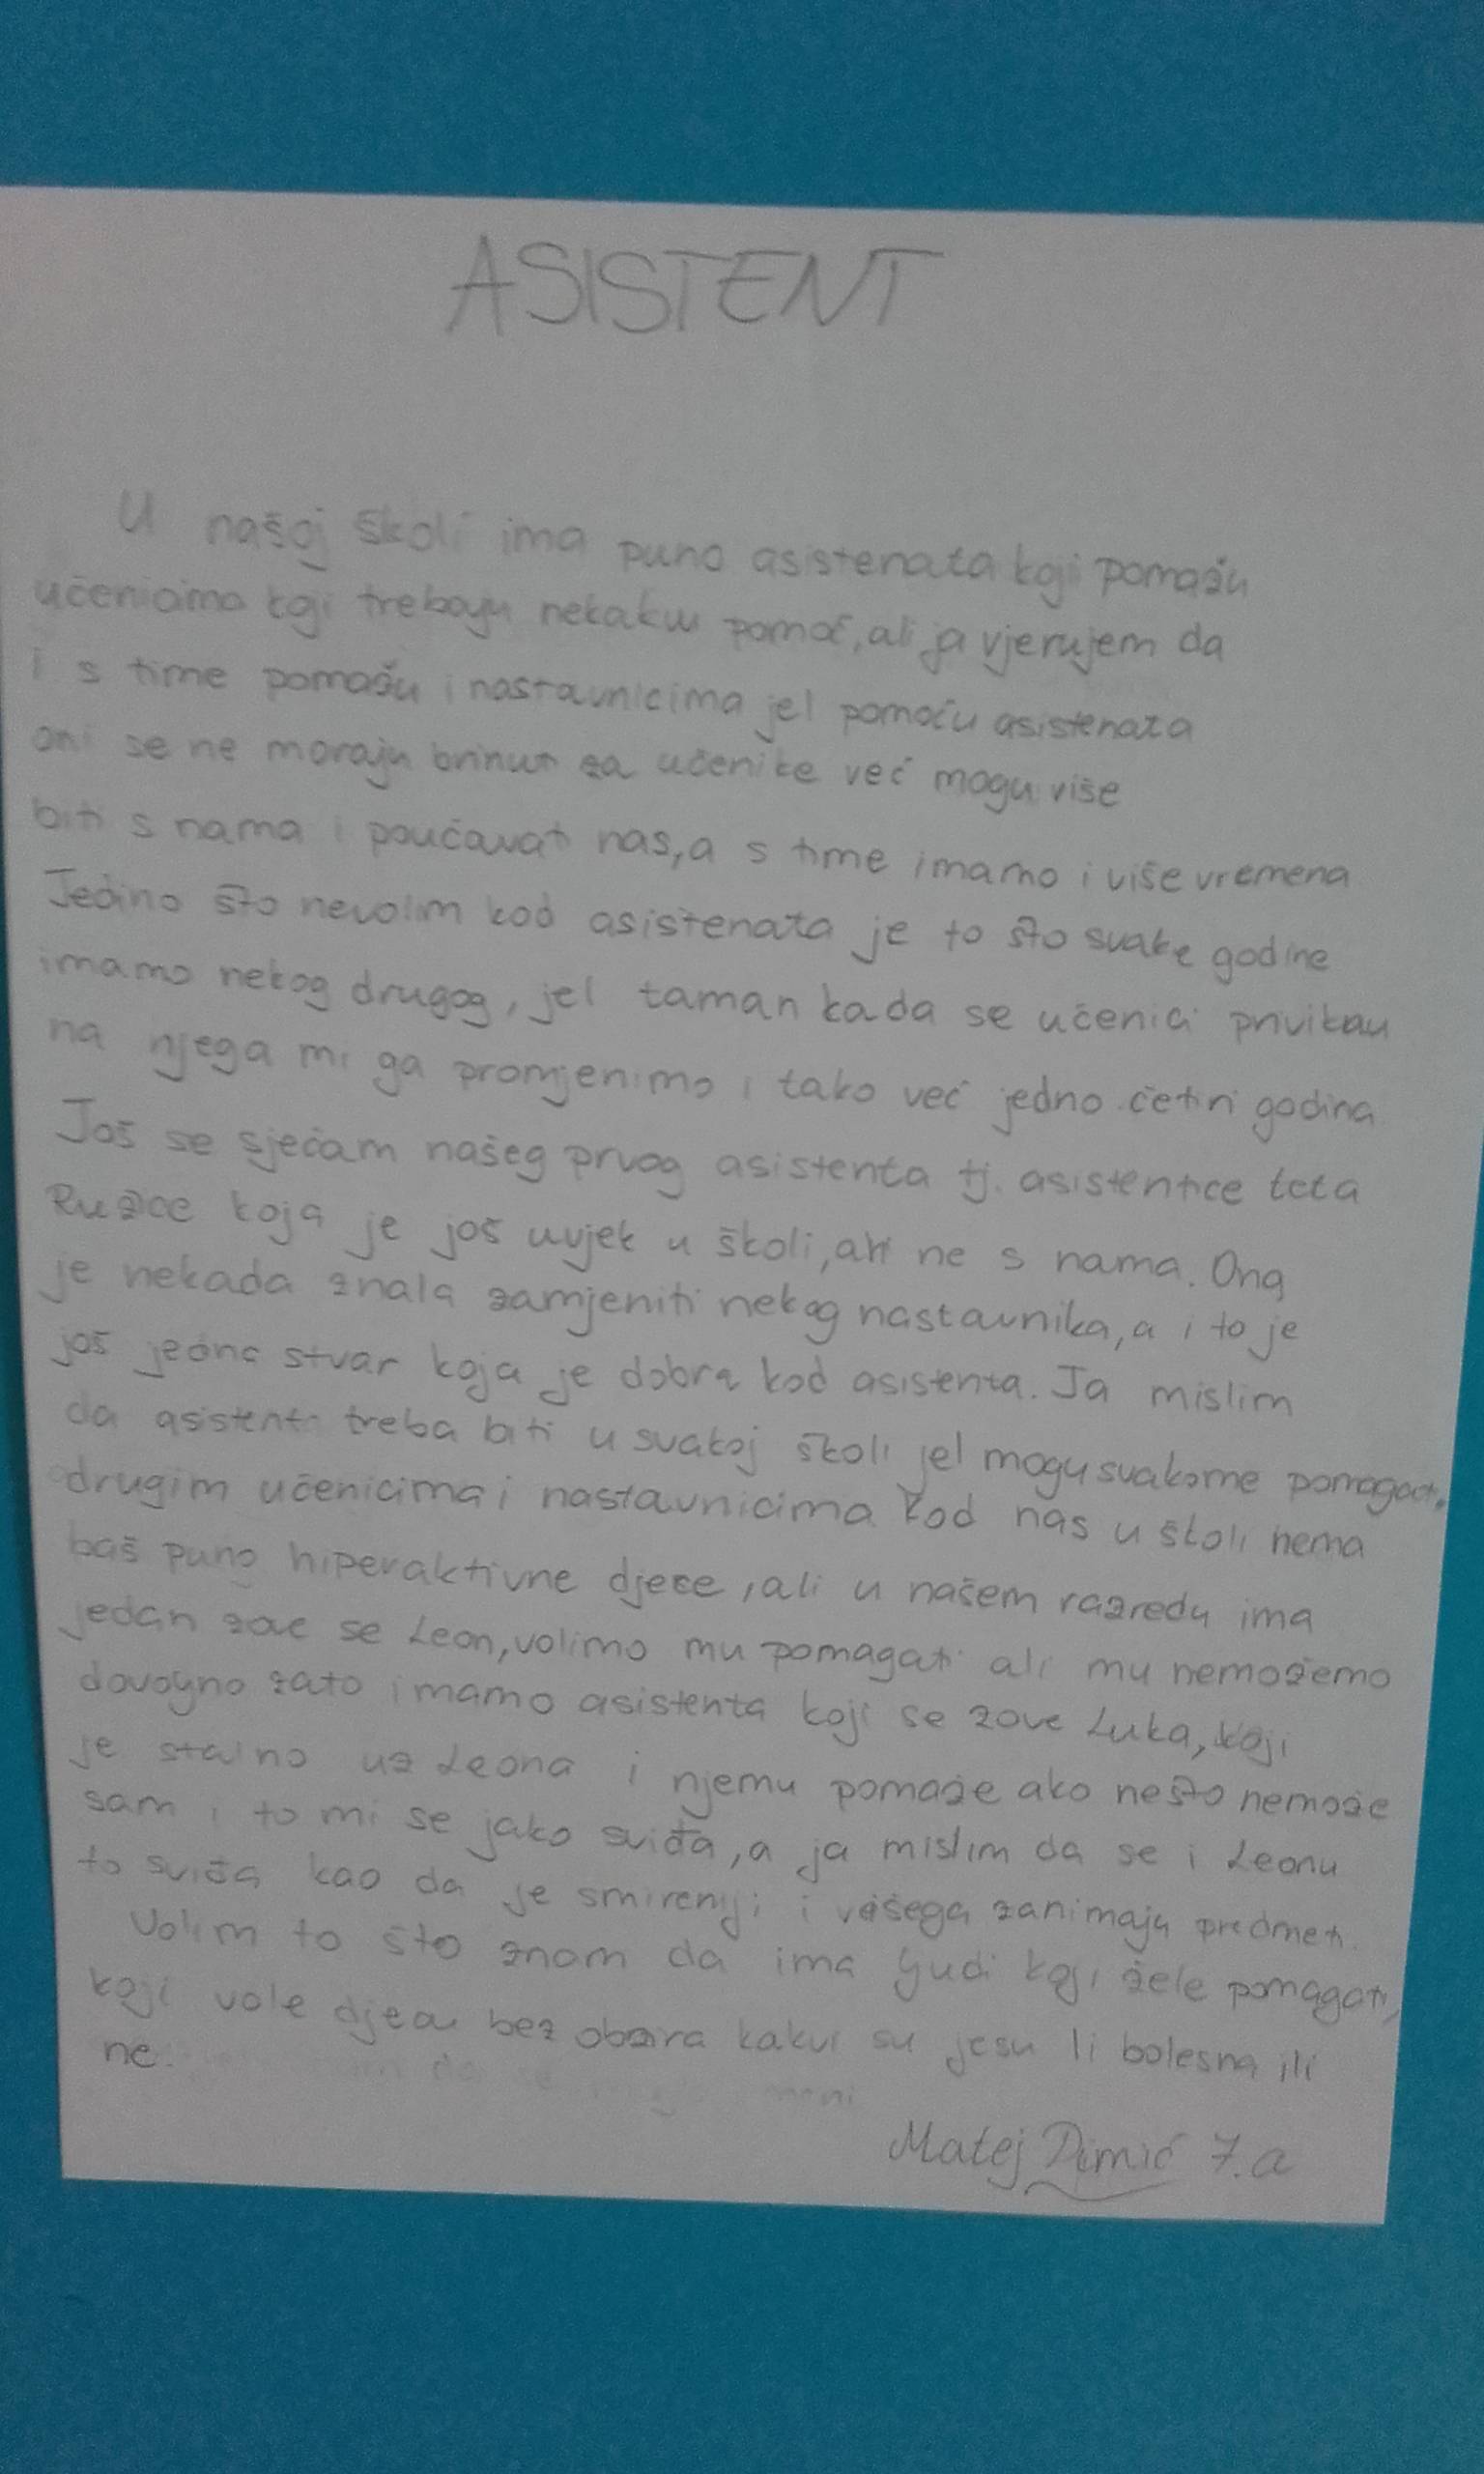 ASISTENT
U našoj školi ima puno asistenata koji pomažu
učenicima koji trebaju nekakvu pomoč, ali ja vjerujem da
i s time pomažu i nastavnicima jel pomoću asistenata
oni se ne moraju brinuti za učenike već mogu više
biti s nama i poučavati nas, a s time imamo i više vremena
Jedino što nevolim kod asistenata je to što svake godine
imamo nekog drugog, jel taman kada se učenici priviknu
na njega mi ga promjenimo i tako već jedno četiri godina
Još se sječam našeg prvog asistenta tj. asistentice teta
Ružice koja je još uvjek u školi, ali ne s nama. Ona
je nekada znala zamjeniti nekog nastavnika, a i to je
još jedna stvar koja je dobra kod asistenta. Ja mislim
da asistenti treba biti u svakoj školi jel mogu svakome pomagati
drugim učenicima i nastavnicima. Kod nas u školi nema
baš puno hiperaktivne djece, ali u našem razredu ima
jedan zove se Leon, volimo mu pomagati ali mu nemožemo
dovoljno zato imamo asistenta koji se zove Luka, koji
je stalno uz Leona i njemu pomaže ako nešto nemože
sam i to mi se jako sviđa, a ja mislim da se i Leonu
to sviđa kao da je smireniji i višega zanimaju predmeti.
Volim to što znam da ima ljudi koji žele pomagati,
koji vole djecu bez obzira kakvi su jesu li bolesna ili
ne.
Matej Dimić 7.a